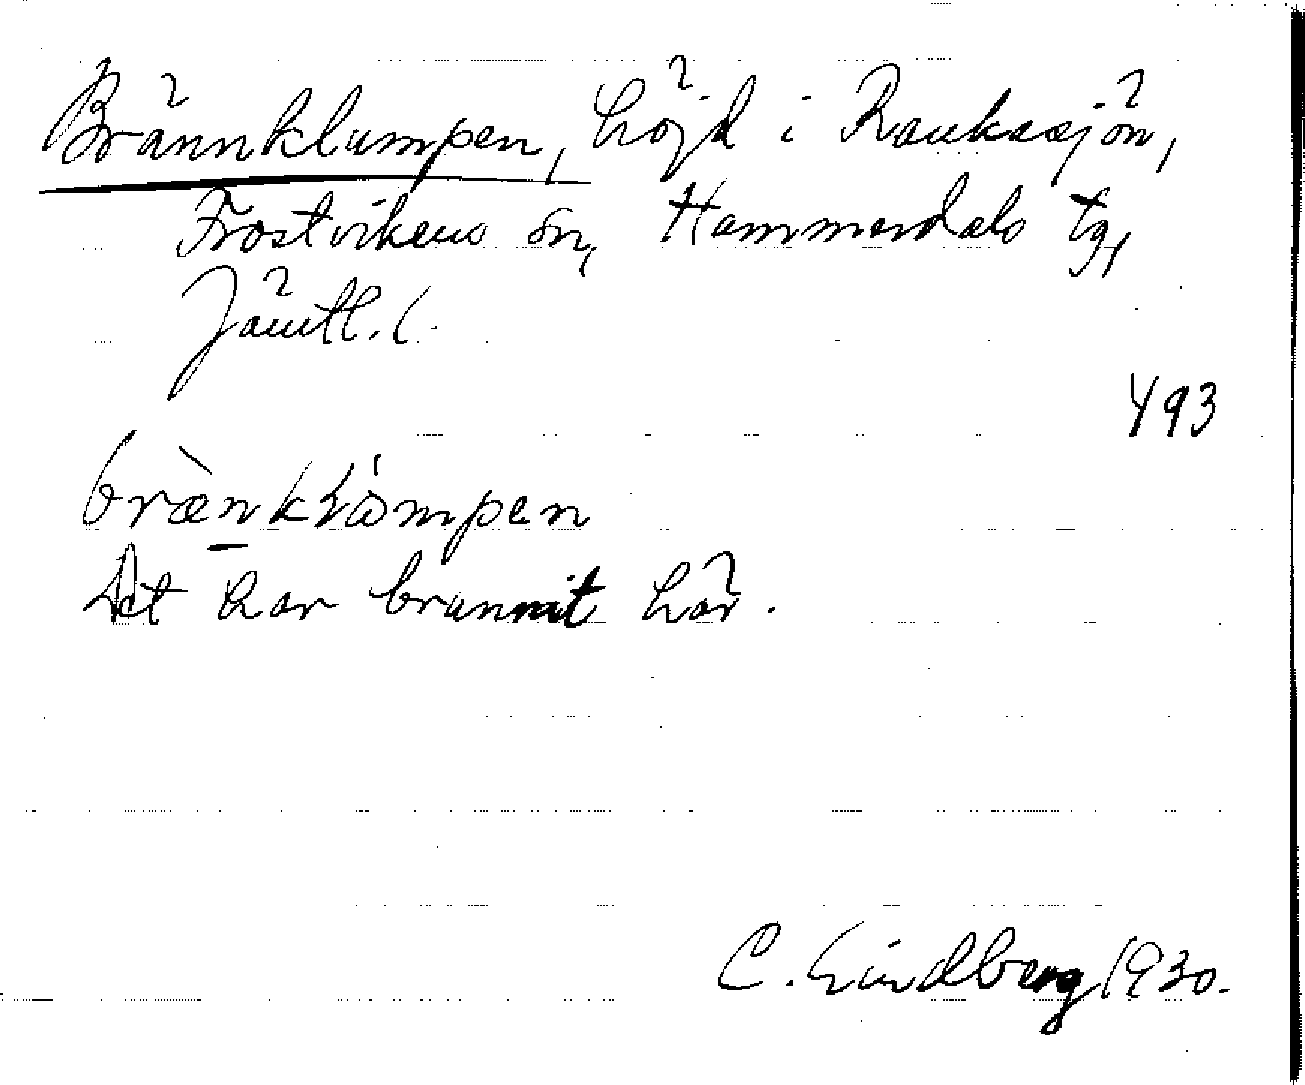 Brännklumpen, höjd i Raukasjön,
Frostvikens sn, Hammerdals tg,
Jämtl. l.
493
brænkɫɷmpen
Det har brunnit här.
C. Lindberg 1930.